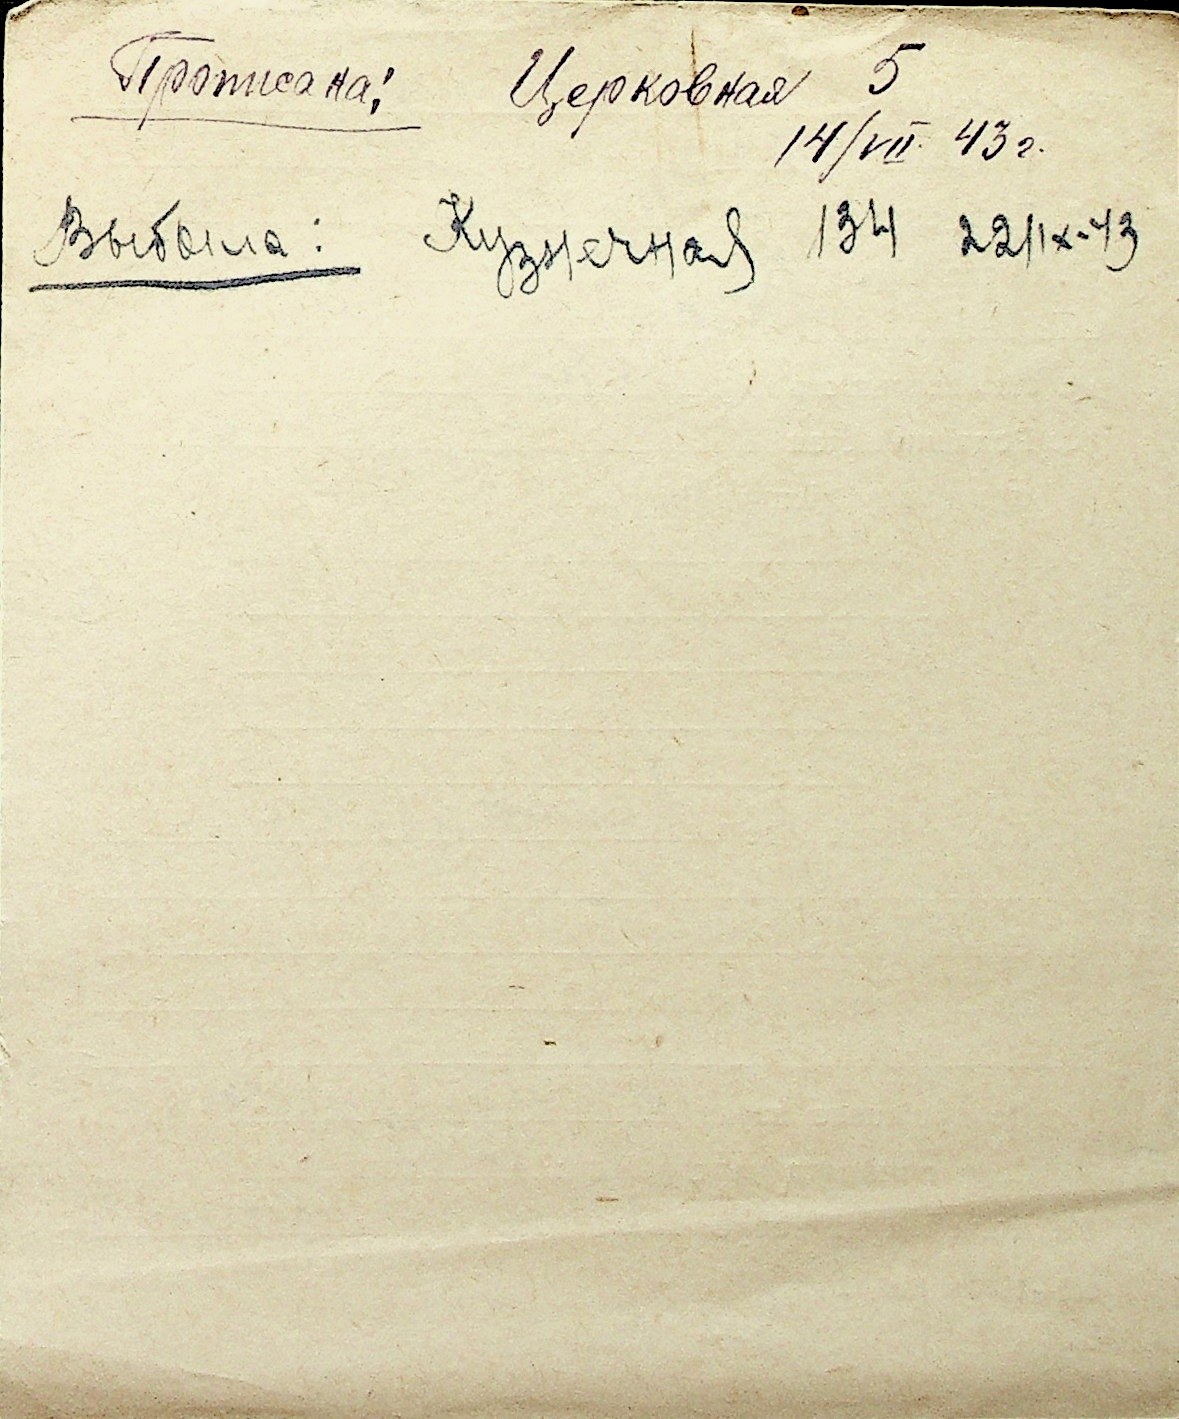 Прописана: Церковная 5
14/VII 43 г.
Выбыла: Кузнечная 134 22/IX-43